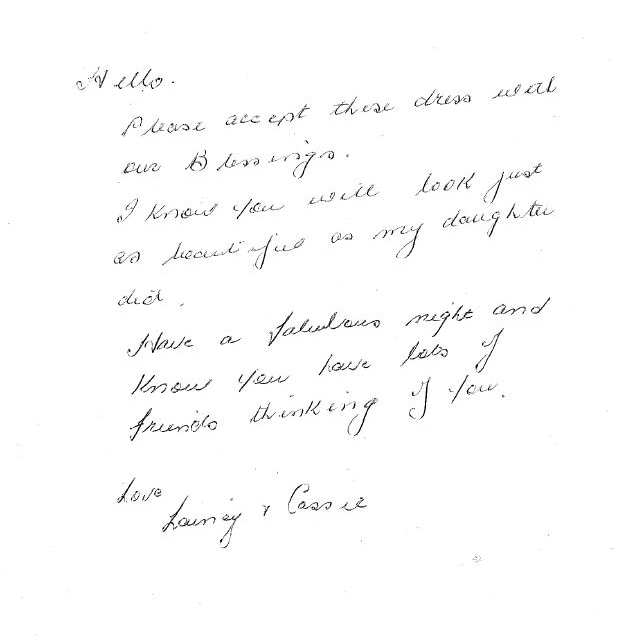 Hello.
Please accept these dress with
our Blessings.
I know you will look just
as beautiful as my daughter
did.
Have a fabulous night and
know you have lots of
friends thinking of you.
Love
Lainey & Cassie